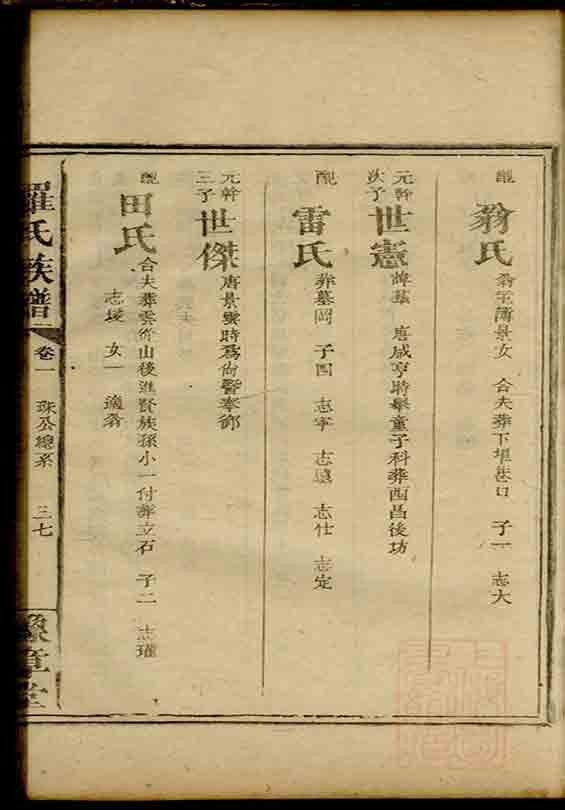 配 翁氏 翁 景女 合夫葬下 巷口 子一 志大
元幹次子 世憲 諱 唐咸亨時舉童子科葬西昌後功
配 雷氏 葬墓岡 子四 志寧 志 志仕 志定
元幹三子 世傑 唐景雲時為尚醫奉御
配 田氏 合夫葬雲 山後進賢族孫小一付葬立石 子二 志瓘
志 女一 適翁
羅氏族譜 卷一 珠公總系 三七 豫章堂